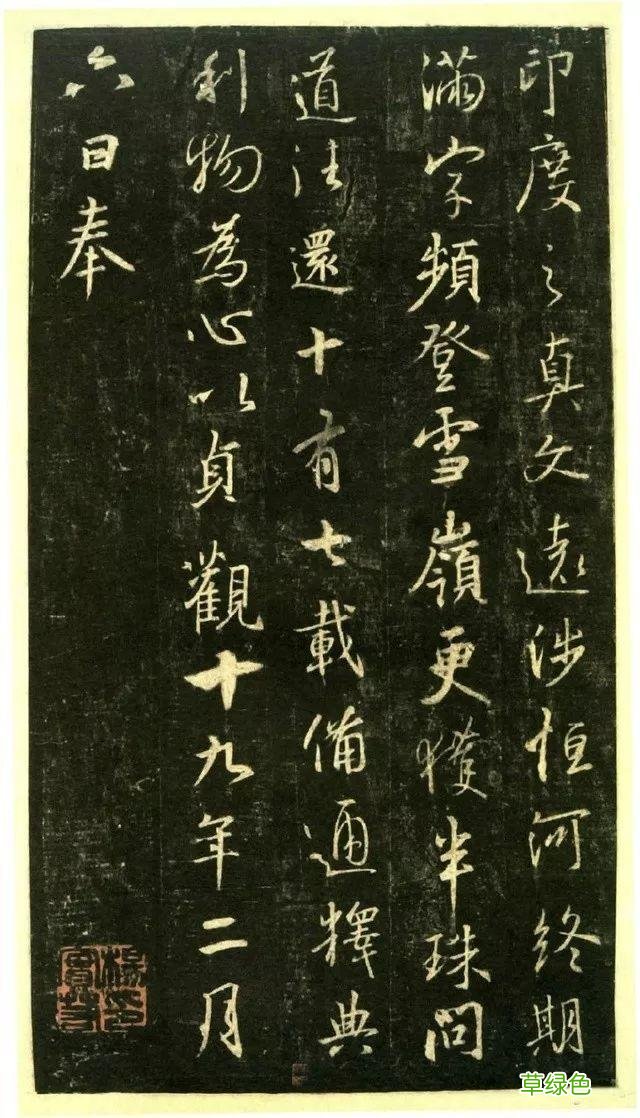 印度之真文遠涉恒河終期
滿字頻登雪嶺更獲半珠問
道法還十有七載備通釋典
利物為心以貞觀十九年二月
六日奉
草绿色